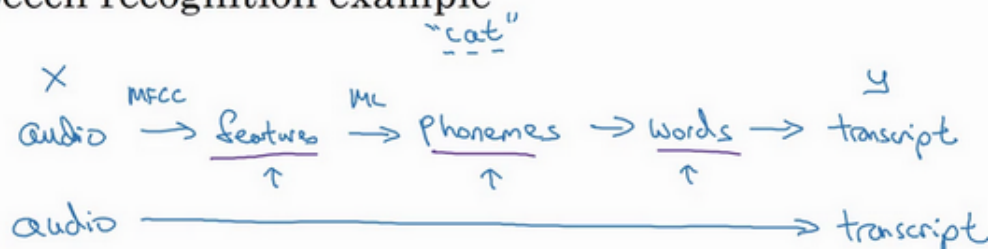 speech recognition example
"cat"
X y
MFCC ML
audio → features → phonemes → words → transcript
↑ ↑ ↑
audio → transcript